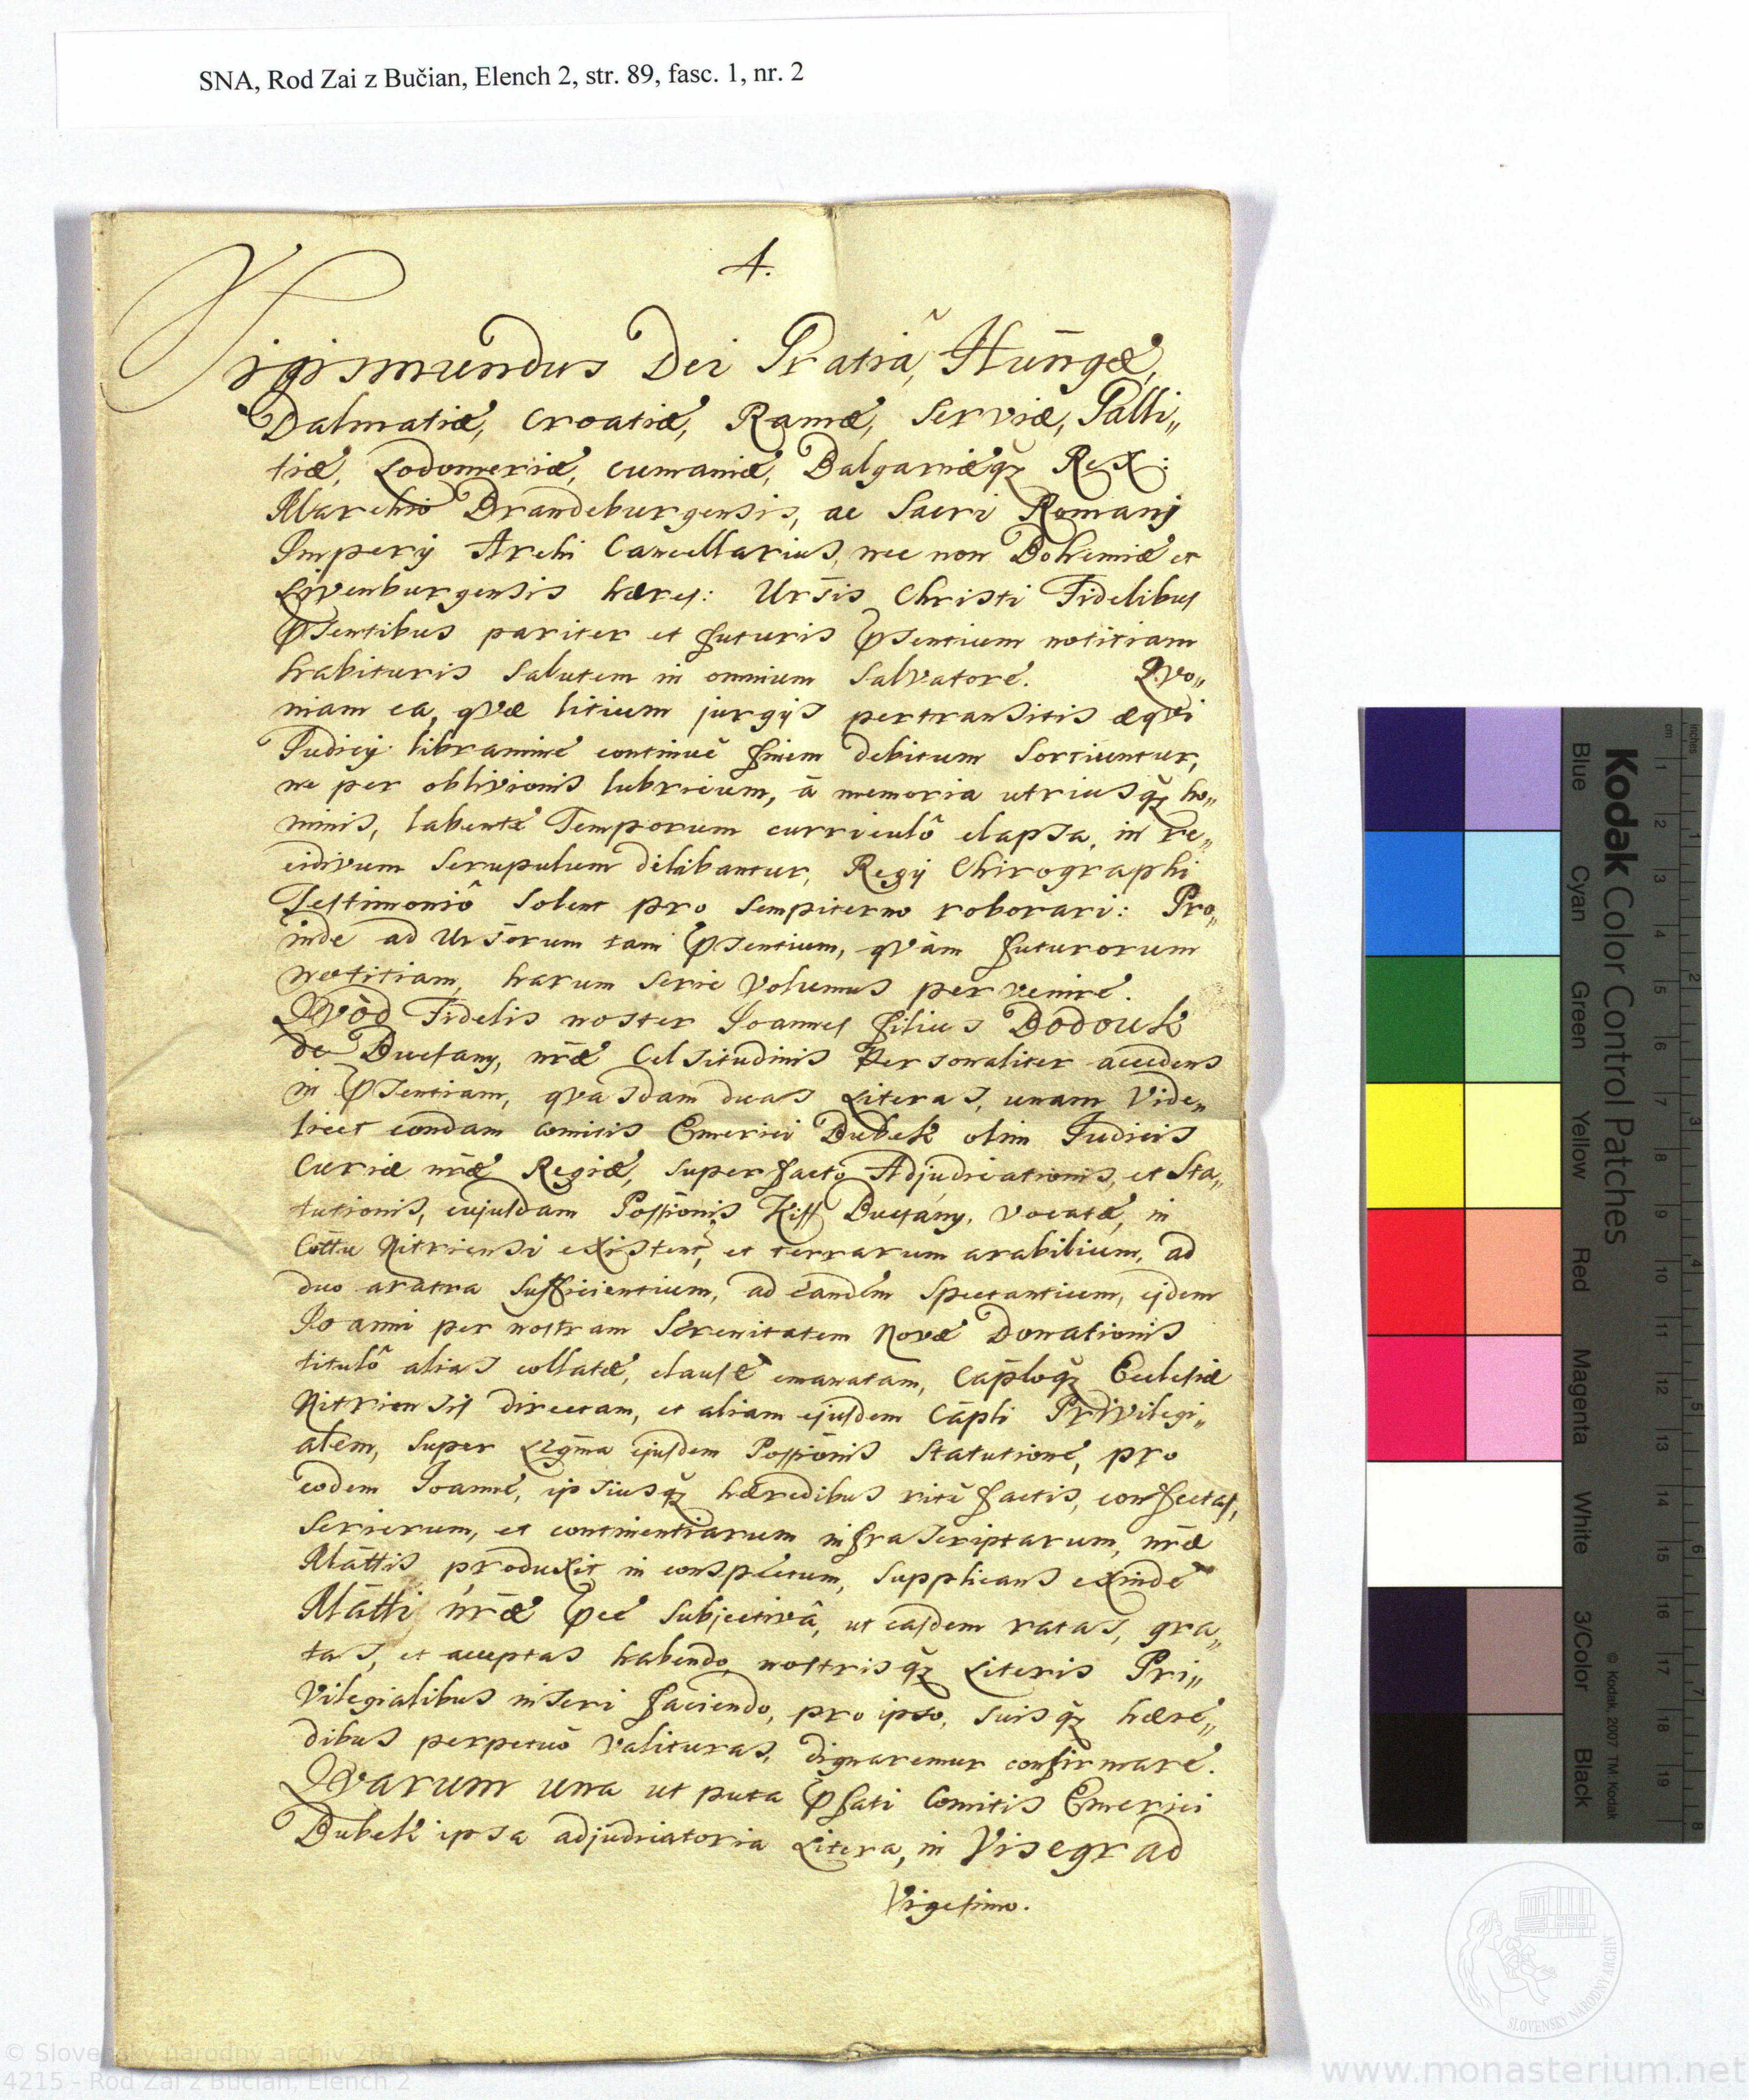 SNA, Rod Zai z Bučian, Elench 2, str. 89, fasc. 1, nr. 2
A.
Sigismundus Dei Gratiâ, Hungæ,
Dalmatiæ, Croatiæ, Ramæ, Serviæ, Galli„
tiæ, Lodomeriæ, Cumaniæ, Bulgariæq3 Rex:
Marchio Brandeburgensis, ac Sacri Romanij
Imperij Archi Cancellarius, nec non Bohemiæ et
Livenburgensis hæres: Ursis Christi Fidelibus
Psentibus pariter et futuris Psentium notitiam
habituris salutem in omnium Salvatore. Qvo„
niam ea, qvæ litium jurgijs pertransitis æqvi
Judicij libramine continuè finem debitum sortiuntur,
ne per oblivionis lubricum, à memoria utriusq3 ho„
minis, labente Temporum curriculô elapsa, in re„
cidivum scrupulum dilabantur, Regij Chirographi
Testimoniô solent pro sempiterno roborari: Pro„
inde ad Ursorum tam Psentium, qvàm futurorum
notitiam, harum serie volumus pervenire.
Qvòd Fidelis noster Joannes filius Bodouk
de Bucsany, nr̄æ Celsitudinis Personaliter accedens
in Psentiam, qvasdam duas Literas, unam Vide„
licet condam Comitis Emerici Bubek olim Judicis
Curiæ nr̄æ Regiæ, super facto Adjudicationis, et Sta„
tutionis, cujusdam Possionis Kiss Bucsany, vocatæ, in
Cottu Nitriensi existent, et terrarum arabilium, ad
duo aratra sufficientium, ad eandem spectantium, ejdem
Joanni per nostram Serenitatem Novæ Donationis
titulô alias collatæ, clausè emanatam, Caploq3 Ecclesiæ
Nitriensis directam, et aliam ejusdem Capli Privilegi„
alem, super Legma ejusdem Possionis Statutione, pro
eodem Joanne, ipsiusq3 hæredibus ritè factis, confectas,
serierum, et continentiarum infrascriptarum, nr̄æ
Mattis produxit in conspectum, supplicans exinde
Matti nr̄æ Pce subjectivâ, ut easdem ratas, gra„
tas, et acceptas habendo, nostrisq3 Literis Pri„
vilegialibus inseri faciendo, pro ipso, suisq3 hære„
dibus perpetuò valituras, dignaremur confirmare.
Qvarum una ut puta Pfati Comitis Emerici
Bubek ipsa adjudicatoria Litera, in Visegrad
Vigesimo.
Kodak Color Control Patches
Blue
Cyan
Green
Yellow
Red
Magenta
White
3/Color
Black
© Kodak, 2007 TM: Kodak
inches
cm
1 2 3 4 5 6 7 8 9 10 11 12 13 14 15 16 17 18 19
1 2 3 4 5 6 7 8
SLOVENSKÝ NÁRODNÝ ARCHÍV
© Slovenský národný archív 2010
4215 - Rod Zai z Bučian, Elench 2
www.monasterium.net